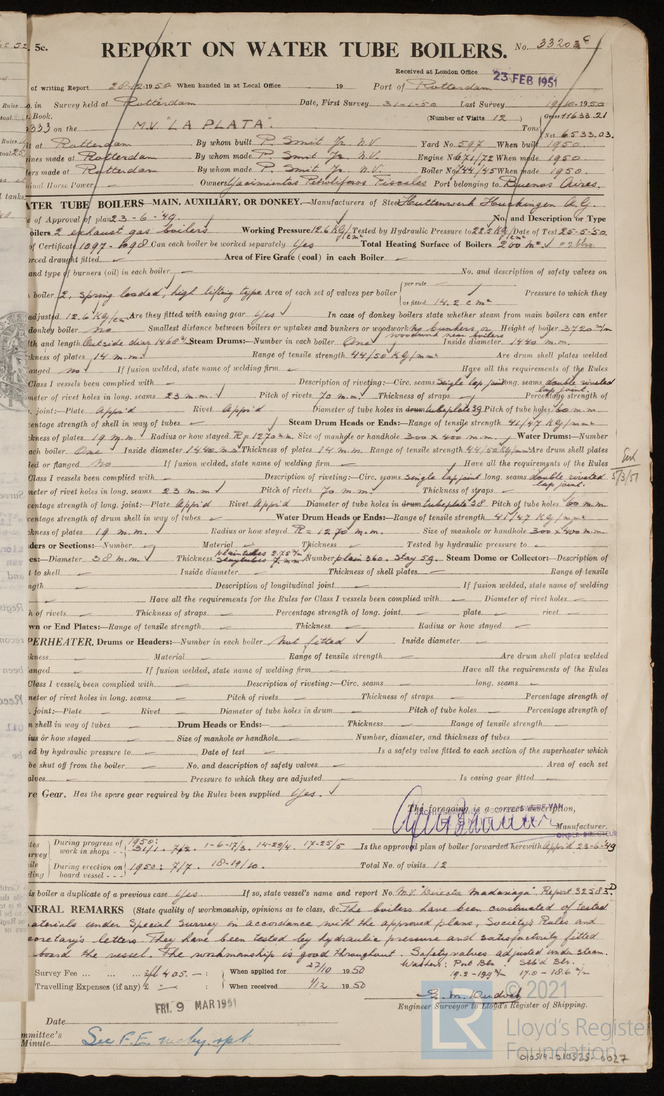 5c. REPORT ON WATER TUBE BOILERS. No. 33203c
Received at London Office 23 FEB 1951
of writing Report 1950 When handed in at Local Office 19 Port of Rotterdam
in Survey held at Rotterdam Date, First Survey 31-1-50 Last Survey 19-10-1950
Book. (Number of Visits 12) Gross 11633.21
on the M.V. "LA PLATA". Tons Net 6533.03.
at Rotterdam By whom built P. Smit Jr. N.V. Yard No. 597 When built 1950.
made at Rotterdam By whom made P. Smit Jr. N.V. Engine No. 671/72 When made 1950.
made at Rotterdam By whom made P. Smit Jr. N.V. Boiler No. 744/45 When made 1950.
Horse Power Owners Yacimientos Petroliferos Fiscales Port belonging to Buenos Aires.
WATER TUBE BOILERS—MAIN, AUXILIARY, OR DONKEY.—Manufacturers of Steel
of Approval of plan 23-6-49. No. and Description or Type
2 exhaust gas boilers Working Pressure 12.6 KG/cm² Tested by Hydraulic Pressure to Date of Test 25-5-50
of Certificate 1097-1098 Can each boiler be worked separately Yes Total Heating Surface of Boilers 200 m²
draught fitted Area of Fire Grate (coal) in each Boiler
and type of burners (oil) in each boiler No. and description of safety valves on
boiler 2, spring loaded, high lifting type Area of each set of valves per boiler per rule as fitted 14.2 cm² Pressure to which they
adjusted 12.6 KG/cm² Are they fitted with easing gear Yes In case of donkey boilers state whether steam from main boilers can enter
donkey boiler no Smallest distance between boilers or uptakes and bunkers or woodwork no bunkers or woodwork near boilers Height of boiler 3720 m/m
and length Outside diar 1468 Steam Drums:—Number in each boiler One Inside diameter 1440 m.m.
of plates 14 m.m. Range of tensile strength 44/50 KG/mm² Are drum shell plates welded
no If fusion welded, state name of welding firm Have all the requirements of the Rules
Class I vessels been complied with Description of riveting:—Circ. seams single lap joint long. seams double riveted lap joint.
of rivet holes in long. seams 23 m.m. Pitch of rivets 70 m.m. Thickness of straps Percentage strength of
joint:—Plate App'd Rivet App'd Diameter of tube holes in drum tubeplate 39 Pitch of tube holes 60 m.m.
strength of shell in way of tubes Steam Drum Heads or Ends:—Range of tensile strength 41/47 KG/mm²
of plates 19 m.m. Radius or how stayed R= 1270 m.m. Size of manhole or handhole 300 x 400 m.m. Water Drums:—Number
boiler One Inside diameter 1440 m.m. Thickness of plates 14 m.m. Range of tensile strength 44/50 KG/mm² Are drum shell plates
or flanged No If fusion welded, state name of welding firm Have all the requirements of the Rules
Class I vessels been complied with Description of riveting:—Circ. seams single lap joint long. seams double riveted lap joint.
of rivet holes in long. seams 23 m.m Pitch of rivets 70 m.m. Thickness of straps
5/3/51
strength of long. joint:—Plate App'd Rivet App'd Diameter of tube holes in drum tubeplate 38 Pitch of tube holes 60 m.m
strength of drum shell in way of tubes Water Drum Heads or Ends:—Range of tensile strength 41/47 KG/mm²
of plates 19 m.m. Radius or how stayed R= 1270 m.m. Size of manhole or handhole 300 x 400 m.m
or Sections:—Number Material Thickness Tested by hydraulic pressure to
Diameter 38 m.m. Thickness Number plain 360. Stay 59. Steam Dome or Collector:—Description of
to shell Inside diameter Thickness of shell plates Range of tensile
Description of longitudinal joint If fusion welded, state name of welding
Have all the requirements of the Rules for Class I vessels been complied with Diameter of rivet holes
of rivets Thickness of straps Percentage strength of long. joint plate rivet
or End Plates:—Range of tensile strength Thickness Radius or how stayed
SUPERHEATER, Drums or Headers:—Number in each boiler Not fitted Inside diameter
Material Range of tensile strength Are drum shell plates welded
If fusion welded, state name of welding firm Have all the requirements of the Rules
Class I vessels been complied with Description of riveting:—Circ. seams long. seams
of rivet holes in long. seams Pitch of rivets Thickness of straps Percentage strength of
joint:—Plate Rivet Diameter of tube holes in drum Pitch of tube holes Percentage strength of
shell in way of tubes Drum Heads or Ends:— Thickness Range of tensile strength
or how stayed Size of manhole or handhole Number, diameter, and thickness of tubes
by hydraulic pressure to Date of test Is a safety valve fitted to each section of the superheater which
be shut off from the boiler No. and description of safety valves Area of each set
Pressure to which they are adjusted Is easing gear fitted
Gear. Has the spare gear required by the Rules been supplied Yes.
The foregoing is a correct description,
Manufacturer.
During progress of work in shops 1950: 31/1- 7/2. 1-6-17/3. 14-29/4. 17-25/5 Is the approved plan of boiler forwarded herewith App'd 23-6-49
During erection on board vessel 1950: 7/7. 18-19/10. Total No. of visits 12
boiler a duplicate of a previous case Yes If so, state vessel's name and report No. M.V. "Director Madariaga" Report 32583.D
GENERAL REMARKS (State quality of workmanship, opinions as to class, &c. The boilers have been constructed of tested
materials under Special Survey in accordance with the approved plans, Society's Rules and
Secretary's letters. They have been tested by hydraulic pressure and satisfactorily fitted
board the vessel. The workmanship is good throughout. Safety valves adjusted under steam.
Washers: Port Blr. Stb'd Blr.
Survey Fee 405.— When applied for 27/10 1950
Travelling Expenses (if any) £ — When received 4/12 1950
Engineer Surveyor to Lloyd's Register of Shipping.
FRI. 9 MAR 1951
Date
Committee's Minute See F.E. mchy. rpt.
© 2021
LR
Lloyd's Register
Foundation
010519-010525-0027